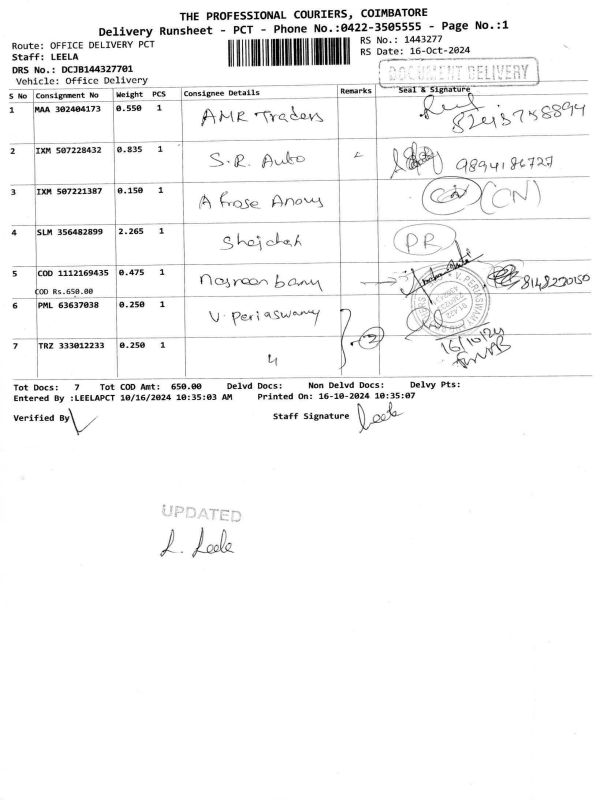 THE PROFESSIONAL COURIERS, COIMBATORE
Delivery Runsheet - PCT - Phone No.:0422-3505555 - Page No.:1
Route: OFFICE DELIVERY PCT
RS No.: 1443277
Staff: LEELA
RS Date: 16-Oct-2024
DRS No.: DCJB144327701
Vehicle: Office Delivery
DOCUMENT DELIVERY
S No Consignment No Weight PCS Consignee Details Remarks Seal & Signature
1 MAA 302404173 0.550 1 AMR Traders
2 IXM 507228432 0.835 1 S.R. Auto 9894186727
3 IXM 507221387 0.150 1 (CN)
4 SLM 356482899 2.265 1 PR
5 COD 1112169435 0.475 1 8148220150
COD Rs.650.00
6 PML 63637038 0.250 1 V. Periaswamy 2
7 TRZ 333012233 0.250 1 16/10/24
Tot Docs: 7 Tot COD Amt: 650.00 Delvd Docs: Non Delvd Docs: Delvy Pts:
Entered By :LEELAPCT 10/16/2024 10:35:03 AM Printed On: 16-10-2024 10:35:07
Verified By
Staff Signature Leela
UPDATED
L. Leela